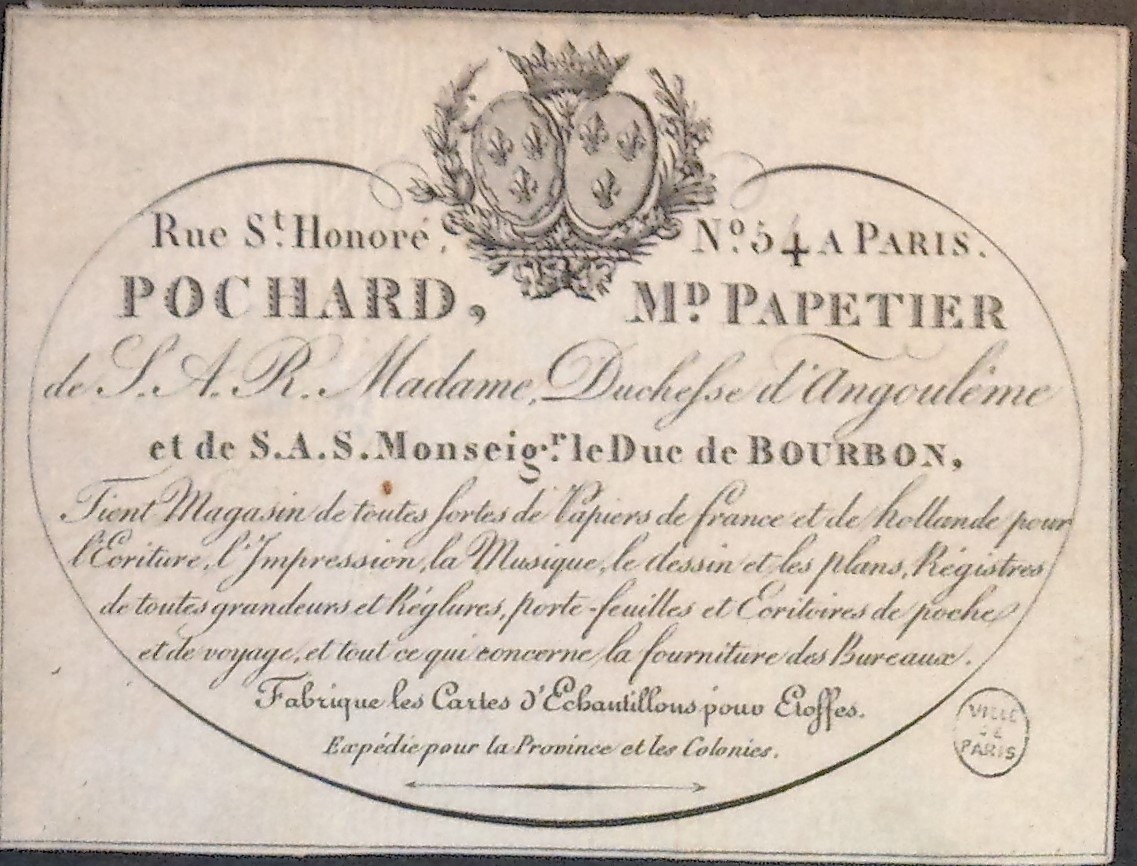 Rue S.t Honoré, N.o 54 A PARIS.
POCHARD, M.D PAPETIER
de S. A. R. Madame, Duchesse d'Angoulême
et de S.A.S. Monseig.r le Duc de BOURBON,
Tient Magasin de toutes sortes de Papiers de france et de hollande pour
l'Ecriture, l'Impression, la Musique, le dessin et les plans, Régistres
de toutes grandeurs et Réglures, porte-feuilles et Ecritoires de poche
et de voyage, et tout ce qui concerne la fourniture des Bureaux.
Fabrique les Cartes d'Echantillons pour Etoffes.
Expédie pour la Province et les Colonies.
VILLE
DE
PARIS